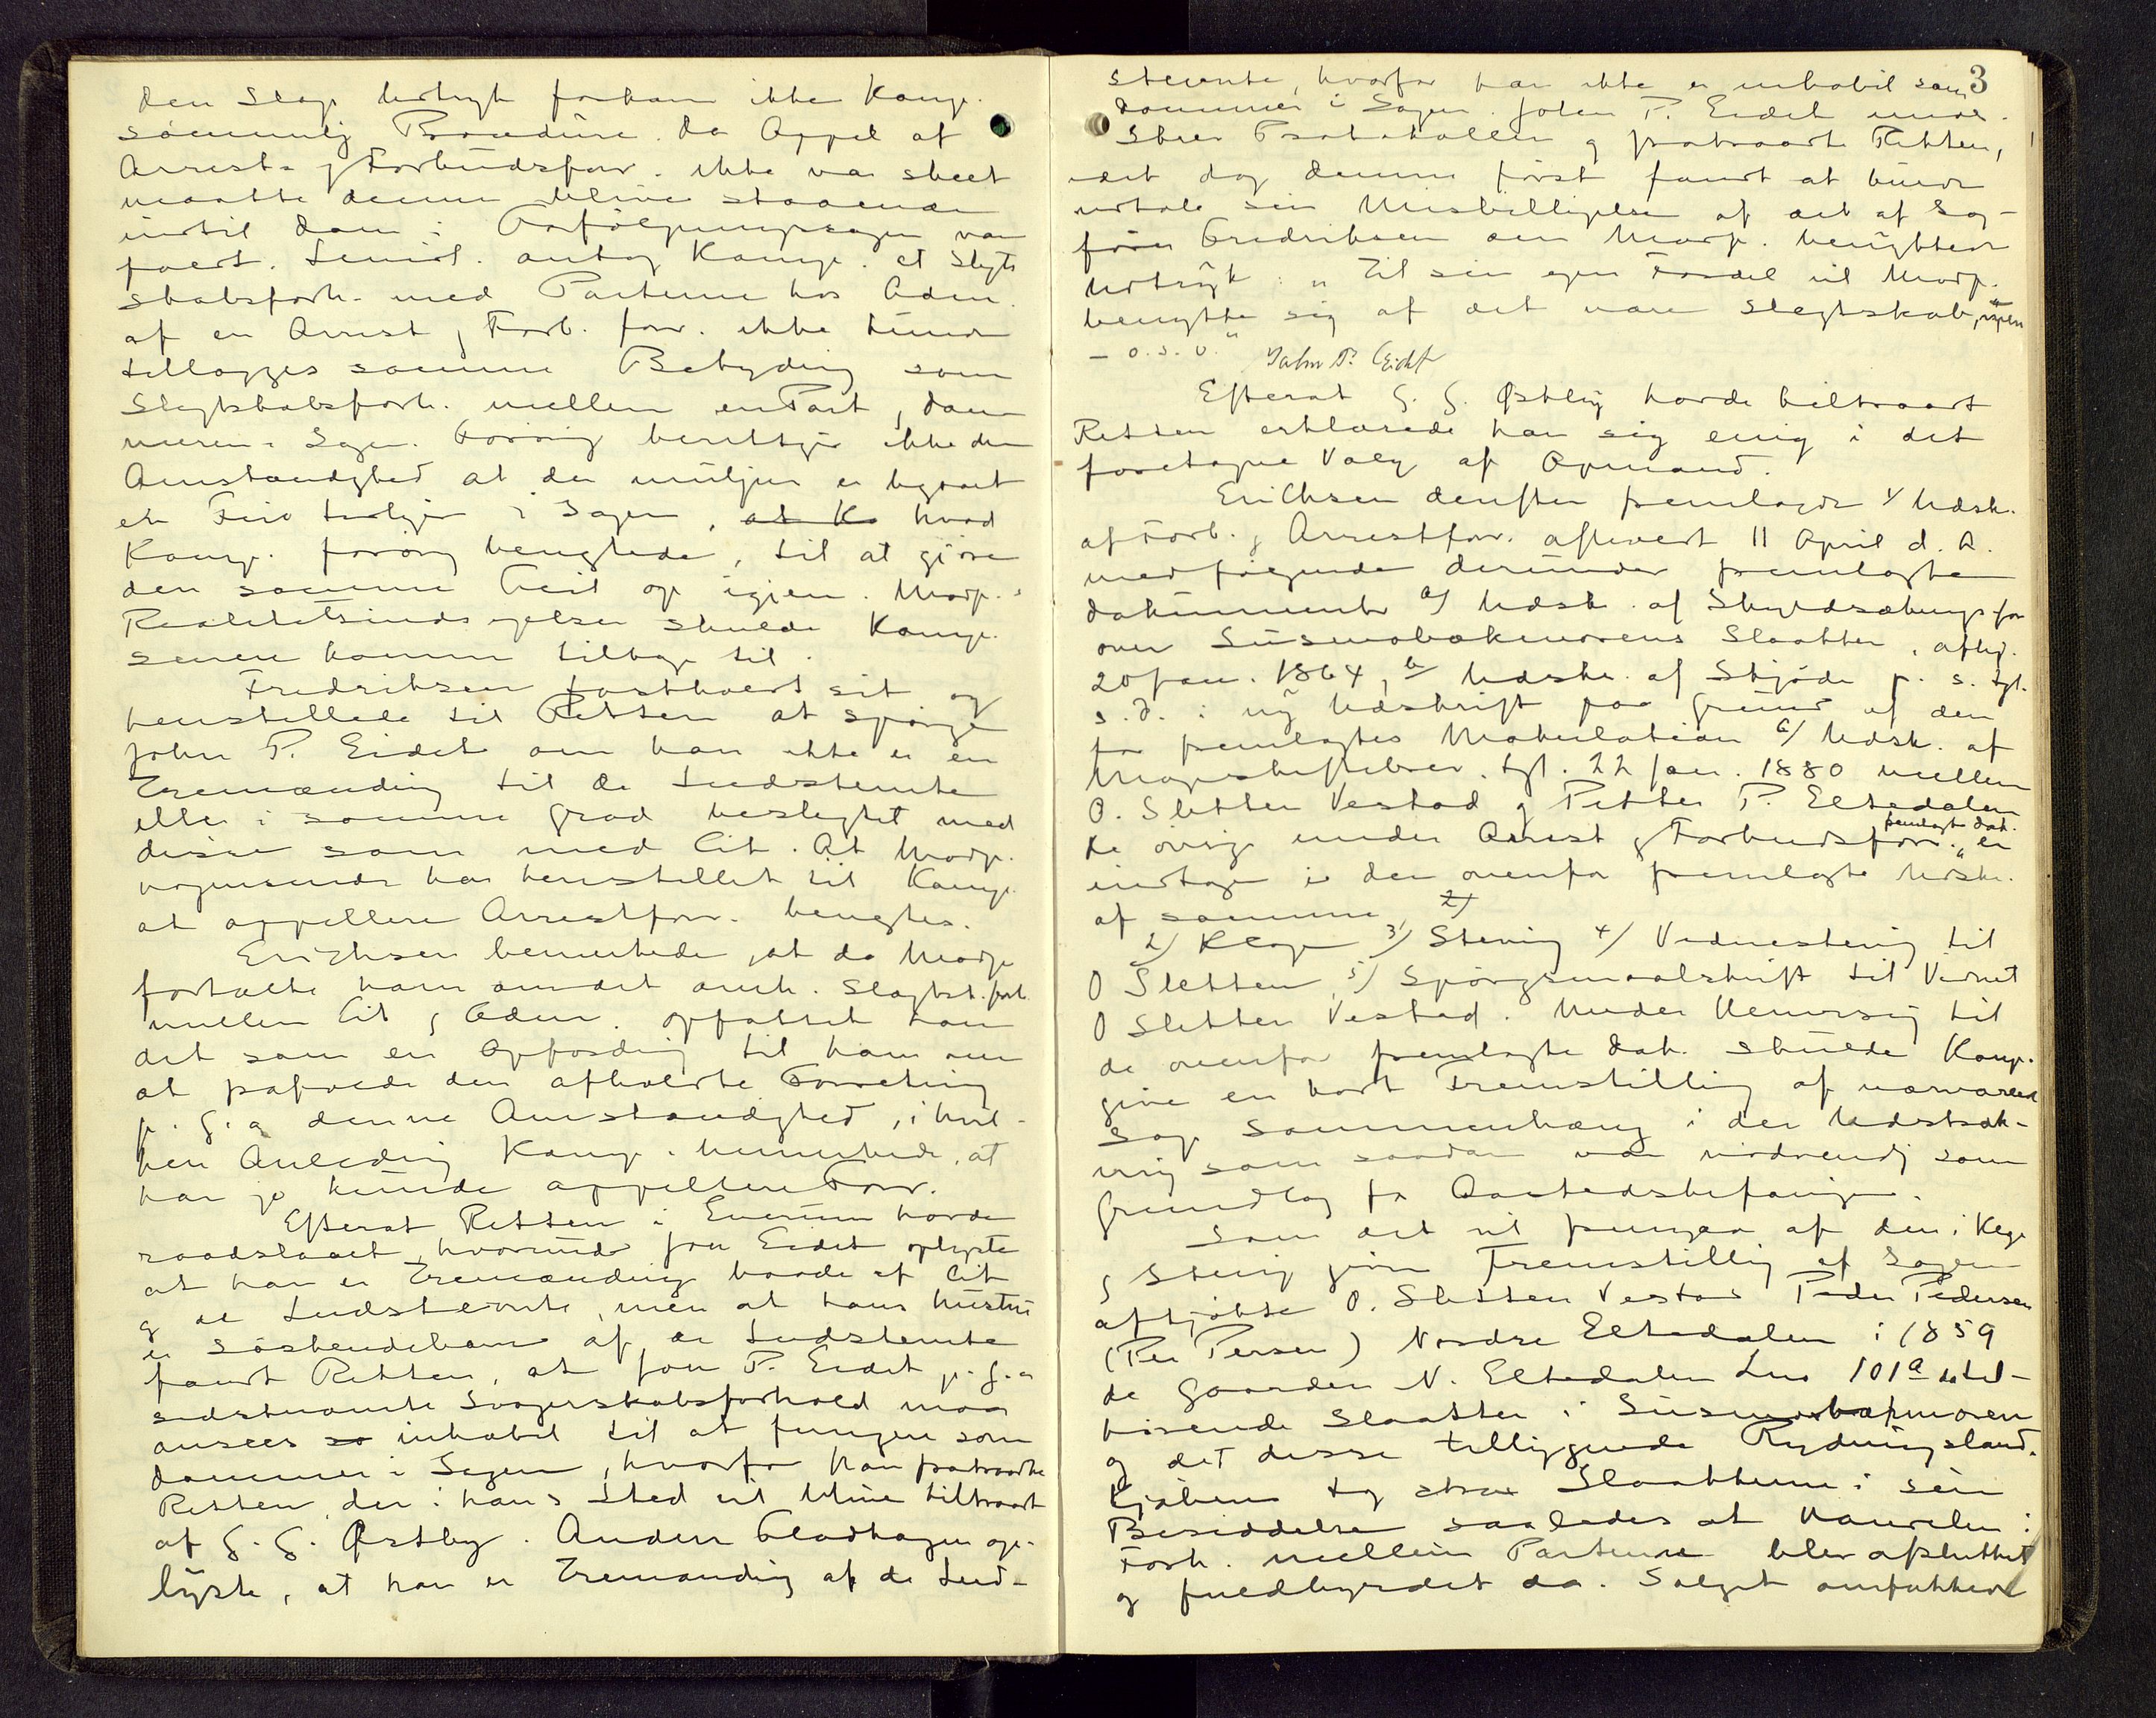 den Slags Udtryk forkom ikke Komp.
sømmelig Procedure. Da Appel af
Arrest- og Forbudsforr. ikke var skeet
maatte denne blive staaende
indtil Dom i Forfølgningssagen var
faldt. Lensm. antog Komp. et Slegt-
skabsforh. med Parterne hos Adm.
af en Arrest og Forb. forr. ikke kunde
tillægges samme Betydning som
Slegtskabsforh. mellem en Part og Dom-
meren i Sagen. Forøvrig berettiger ikke den
Omstændighed at der muligens er begaaet
en Feil tidligere i Sagen, hvad
Komp. forøvrig benegtede, til at gjøre
den samme Feil op igjen. Modp.s
Realitetsindsigelser skulde Komp.
senere komme tilbage til.
Fredriksen fastholdt sit og
henstillede til Retten at spørge
John P. Eidet om han ikke er en
Tremænding til de Indstevnte
eller i samme Grad beslegtet med
disse som med Cit. At Modp.
vogensinde har henstillet til Komp.
at appellere Arrestforr. benegtes.
Erichsen bemerkede, at da Modp.
fortalte ham om det omh. Slegtsk.forh.
mellem Cit. og Adm. opfattet han
det som en Opfordring til ham om
at frafalde den afholdte Forretning
p. G. a. denne Omstændighed, i hvil-
ken Anledning Komp. bemerkede, at
han jo kunde appellere Forr.
Efterat Retten i Enerum havde
raadslaaet, hvorunder Jon Eidet oplyste
at han er Tremænding baade af Cit.
og de Indstevnte, men at hans Hustru
er Søskendebarn af de Indstevnte
fandt Retten, at Jon P. Eidet p. G. a.
sidstnævnte Svogerskabsforhold maa
ansees so inhabil til at fungere som
Dommer i Sagen, hvorfor han fratraadte
Retten, der i hans Sted vil blive tiltraadt
af G. G. Østby. Anders Gladhagen op-
lyste, at han er Tremænding af de Ind-
3
stevnte, hvorfor han ikke er inhabil som
Dommer i Sagen. John P. Eidet under-
skrev Protokollen og fratraadte Retten,
idet dog denne først fandt at burde
udtale sin Misbilligelse af det af Sag-
fører Fredriksen om Modp. benyttede
Udtryk: „Til sin egen Fordel vil Modp.
benytte sig af det nære Slegtskab, igjen
– o. s. v.“ John P. Eidet
Efterat G. G. Østby havde tiltraadt
Retten erklærede han sig enig i det
foretagne Valg af Opmand.
Erichsen derefter fremlagde 1/ Udsk.
af Forb. og Arrestforr. aflevert 11 April d. A.
med følgende derunder fremlagte
Dokumenter a/ Udsk. af Skyldsætningsforr.
over Susnabækmorens Slaatter, afhj.
20 Jan. 1864, b/ Udskr. af Skjøde p. s. tgl.
s. D. i ny Udskrift paa Grund af den
før fremlagtes Makulation c/ Udsk. af
Mageskiftebrev. tgl. 22 Jan. 1880 mellem
O. Sletten Vestad og Petter P. Eltedalen
de øvrige under Arrest og Forbudsforr. fremlagte Dok. er
indtagne i den ovenfor fremlagte Udskr.
af samme, 2)
2) Klage 3) Stevning 4/ Vidnestevning til
O Sletten, 5) Spørgsmaalskrift til Vidnet
O Sletten Vestad. Under Henvisning til
de ovenfor fremlagte Dok. skulde Komp.
give en kort Fremstilling af nærværende
Sags Sammenhæng i den Udstræk-
ning som saadan var nødvendig som
Grundlag for Aastedsbefaringen.
Som det vil fremgaa af den i Klage
og Stevning givne Fremstilling af Sagen
afkjøbte O. Sletten Vestad Peder Pedersen
(Per Persen) Nordre Eltedalen i 1859
de Gaarden N. Eltedalen Lno 101a til-
hørende Slaatter i Susnabækmoren
og det disse tilliggende Rydningsland.
Kjøberen tog strax Slaatterne i sin
Besiddelse saaledes at Handelen i
Forh. mellem Parterne blev afsluttet
og fuldbyrdet da. Salget omfattede